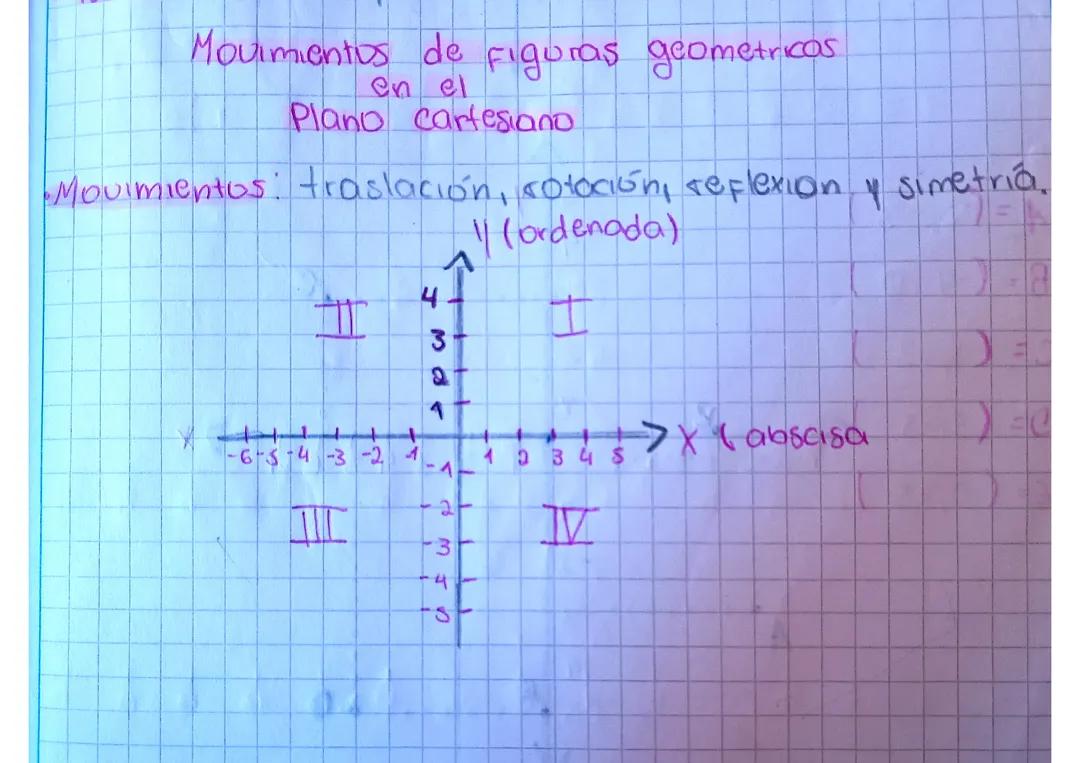 Movimientos de figuras geometricas
en el
Plano cartesiano
.Movimientos: traslación, rotación, reflexion y simetría.
y (ordenada)
II
4
I
3
2
1
x
x (abscisa
-6 -5 -4 -3 -2 1 1 2 3 4 5
-1
III
-2
IV
-3
-4
-5